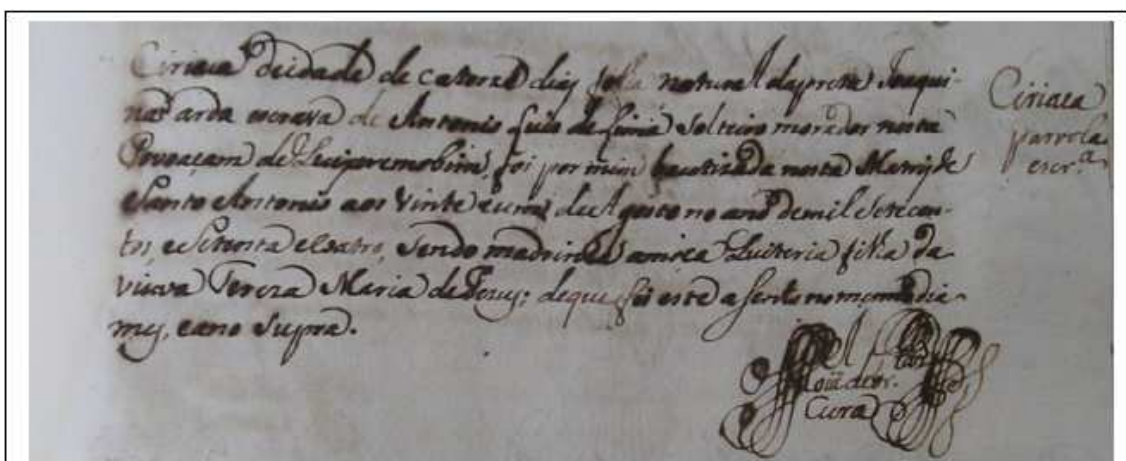 Ciriaca deidade de catorze dias filha natural da preta Joaqui-
na parda escrava de Antonio Luis de Lima Solteiro morador nesta
Povoaçam de foi por mim bautizada nesta Matriz de
Santo Antonio aos Vinte e um de Agosto no ano de mil Setecen-
tos, e Setenta e coatro, Sendo madrinha amoça Quiteria filha da
viuva Tereza Maria de Jesuz; de que fiz este a sento no mesmo dia
mez, e ano Supra.
Ciriaca
parvola
escr.ª
Cura